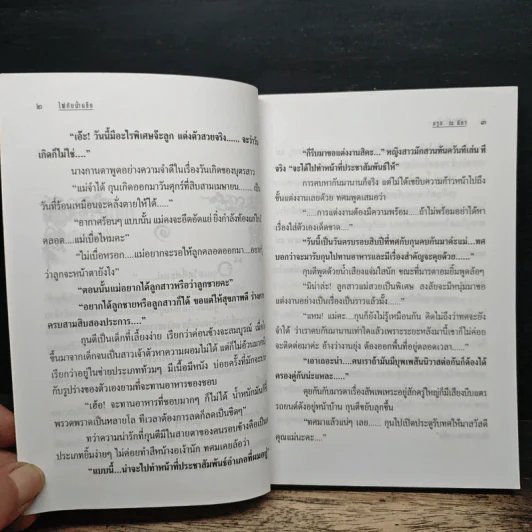 ๒
"เอ๊ะ! วันนี้มีอะไรพิเศษจ๊ะลูก แต่งตัวสวยจริง...... จะว่าวัน
เกิดก็ไม่ใช่...."
นางกานดาพูดอย่างความจำดีในเรื่องวันเกิดของบุตรสาว
"แม่จำได้ กุนเกิดออกมาวันศุกร์ที่สิบสามเมษายน..... เป็น
วันที่ร้อนเหมือนจะคลั่งตายให้ได้...."
"อากาศร้อนๆ แบบนั้น แม่คงจะอึดอัดแย่ ยิ่งกำลังท้องแก่ใกล้
คลอด.... แม่เบื่อไหมคะ"
"ไม่เบื่อหรอก....แม่อยากจะรอให้ลูกคลอดออกมา...
ว่าลูกจะหน้าตายังไง"
"ตอนนั้นแม่อยากได้ลูกสาวหรือว่าลูกชายคะ"
"อยากได้ลูกชายหรือลูกสาวก็ได้ ขอแต่ให้สุขภาพดี
ครบสามสิบสองประการ...."
กุนตีเป็นเด็กที่เลี้ยงง่าย เรียกว่าค่อนข้างจะสมบูรณ์
ขึ้นมาจากเด็กจนเป็นสาวเจ้าตัวหาความผอมไม่ได้ แต่ก็ไม่อ้วนมาก
เรียกว่าอยู่ในข่ายประเภทท้วมๆ มีเนื้อมีหนัง บ่อยครั้งที่มักจะ
กับรูปร่างของตัวเองยามที่จะทานอาหารของชอบ
"เฮ้อ! จะทานอาหารที่ชอบมากๆ ก็ไม่ได้ น้ำหนักมัน
พรวดพราดเป็นหลายโล ทีเวลาต้องการลดก็ลดเป็นขีดๆ"
ทว่าความน่ารักที่กุนตีมีในสายตาของคนรอบข้างคือเป็น
ประเภทยิ้มง่ายๆ ไม่ค่อยทำสีหน้างอเง้านัก ทศมเคยล้อว่า
"แบบนี้...น่าจะไปทำหน้าที่ประชาสัมพันธ์อำเภอที่ผมอยู่
๓
"ก็รีบมาขอแต่งงานสิคะ..." หญิงสาวมักสวนทันควันทีเล่น ที
จริง "จะได้ไปทำหน้าที่ประชาสัมพันธ์ให้"
การคบหากันมานานก็จริง แต่ไม่ได้เขยิบความก้าวหน้าไปถึง
ขั้นแต่งงานเลยด้วย ทศมพูดเสมอว่า
"....การแต่งงานต้องมีความพร้อม.....ถ้าไม่พร้อมอย่าได้หา
เรื่องใส่ตัวเองเด็ดขาด...."
"วันนี้เป็นวันครบรอบสิบปีที่ทศกับกุนคบกันมาค่ะแม่...ทศ
บอกว่าจะมารับกุนไปทานอาหารและมีเรื่องสำคัญจะคุยด้วย......"
กุนตีพูดด้วยน้ำเสียงแจ่มใสนัก ขณะที่มารดายมยิ้มพูดล้อๆ
"มิน่าล่ะ! ลูกสาวแม่สวยเป็นพิเศษ สงสัยจะมีหนุ่มมาขอ
แต่งงานอย่างเป็นเรื่องเป็นราวแล้วมั้ง....."
"แหม! แม่คะ....กุนก็ยังไม่รู้เหมือนกัน คิดไม่ถึงว่าทศจะยัง
จำได้ ว่าเราคบกันมานานเท่าใดแล้วเพราะระยะหลังมานี้เขาก็ไม่ค่อย
จะติดต่อมาค่ะ อ้างว่างานยุ่ง ต้องออกพื้นที่อยู่ตลอดเวลา....."
"เอาเถอะน่า....คนเราถ้ามันมีบุพเพสันนิวาสต่อกันก็ต้องได้
ครองคู่กันน่ะแหละ....."
คุยกันกับมารดาเรื่องสัพเพเหระอยู่สักครู่ใหญ่ก็มีเสียงบีบแตร
รถยนต์ดังอยู่หน้าบ้าน กุนตีขยับลุกขึ้น
"ทศมาแล้วแน่ๆ เลย...... กุนไปเปิดประตูรับทศให้มาสวัสดี
คุณแม่นะคะ..."